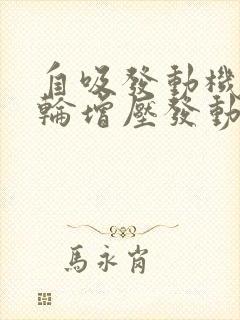 自吸發動機
輪增壓發動
馬永肖